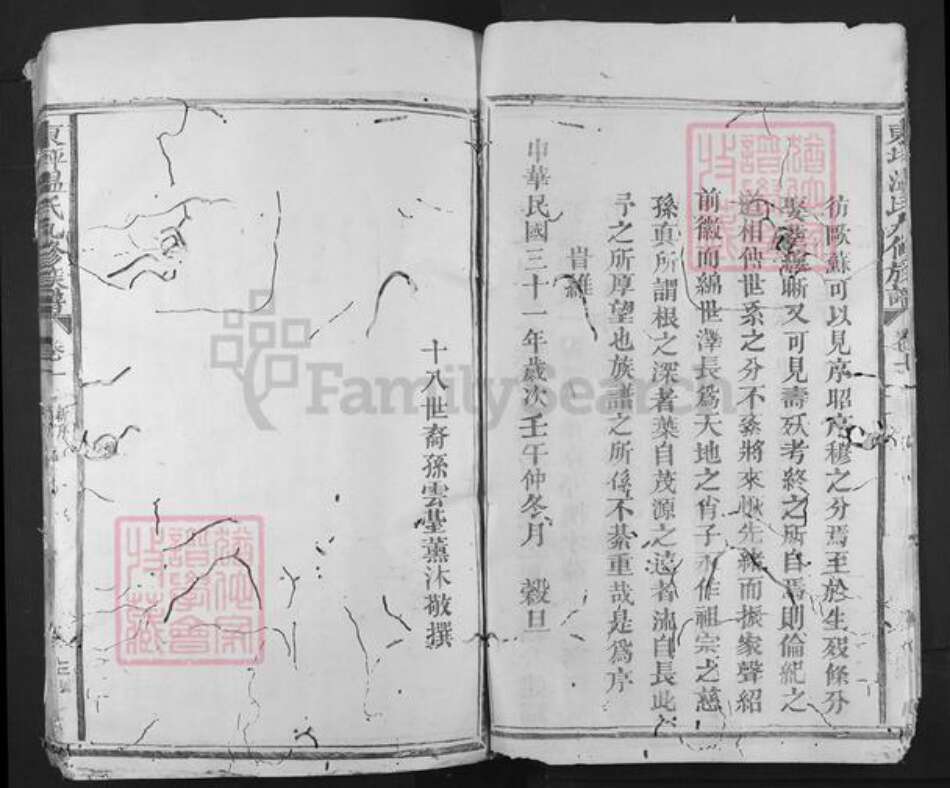 彷歐蘇可以見序昭序穆之分焉至於生歿條分
娶葬無晰又可見壽殀考終之所自焉則倫紀之
道相傳世系之分不紊將來啟先緒而振家聲紹
前徽而綿世澤長為天地之肖子永作祖宗之慈
孫真所謂根之深者葉自茂源之遠者流自長此
予之所厚望也族譜之所係不綦重哉是為序
旹維
中華民國三十一年歲次壬午仲冬月 穀旦
十八世裔孫雲臺薰沐敬撰
東坪溫氏九修族譜 卷一
FamilySearch